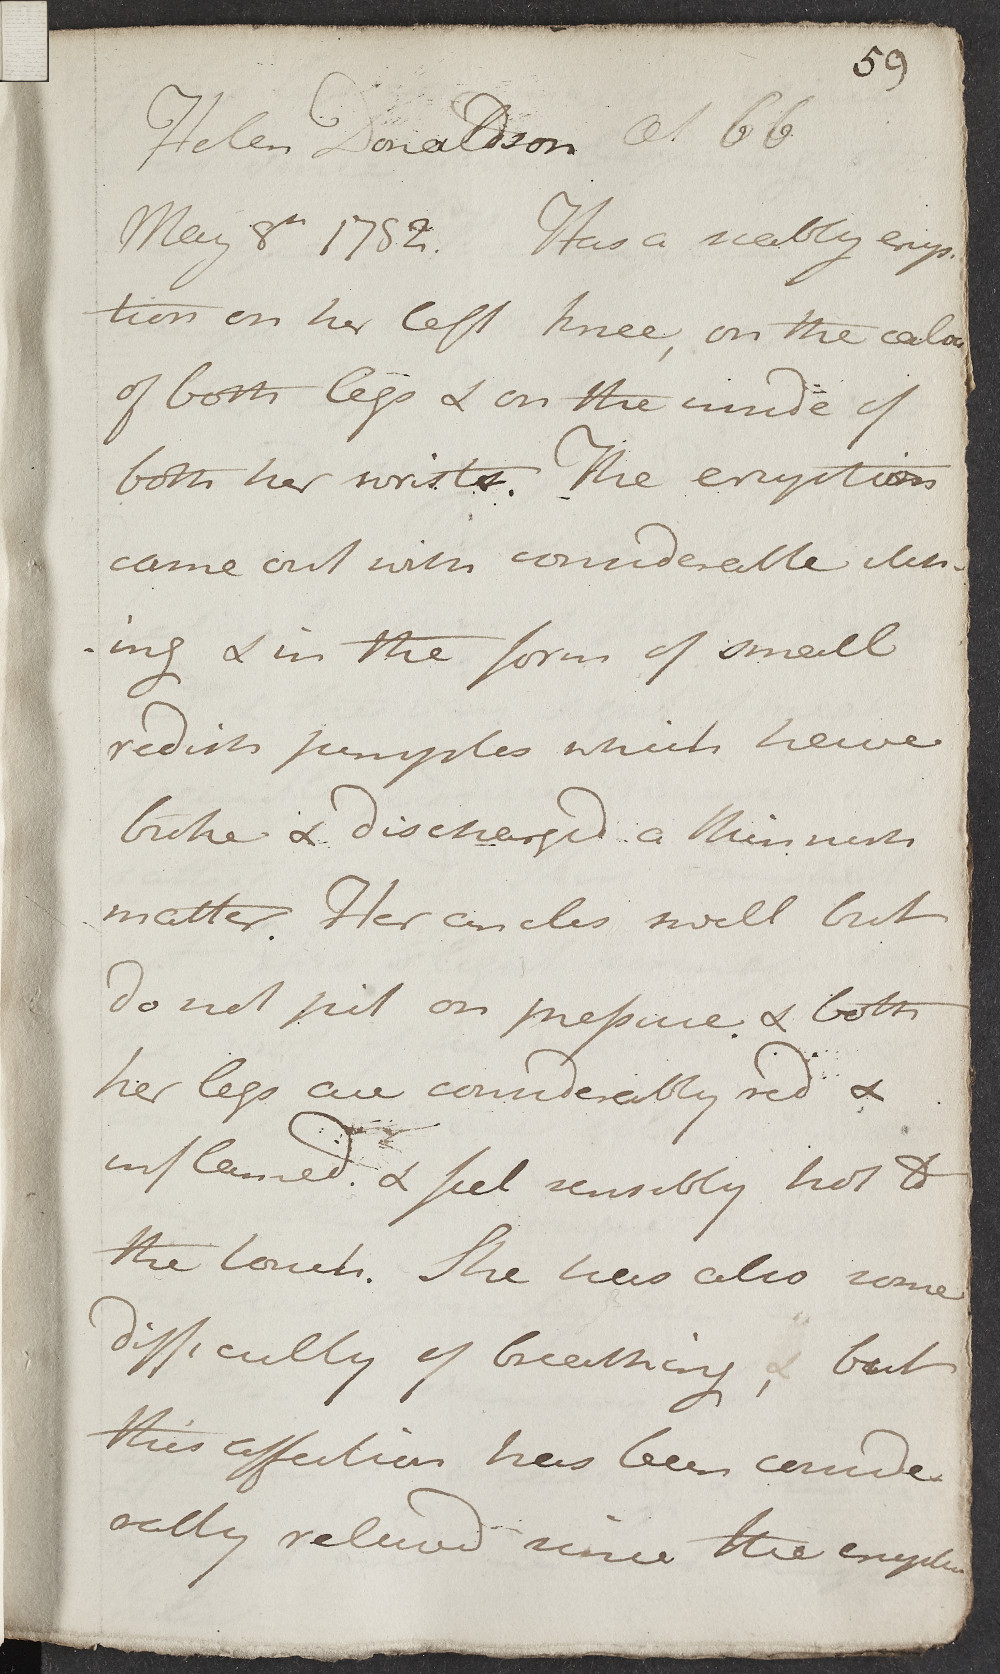 59
Helen Donaldson Æt. 66
May 8th 1782. Has a scabby erup-
tion on her left knee, on the calves
of both legs & on the inside of
both her wrists. The eruption
came out with considerable itch-
-ing & in the form of small
redish pimples which have
broke & discharged a thinnish
matter. Her ancles swell but
do not pit on preſsure. & both
her legs are considerably red &
inflamed. & feel sensibly hot to
the touch. She has also some
difficulty of breathing, & but
this affection has been conside-
rably releived since the eruption